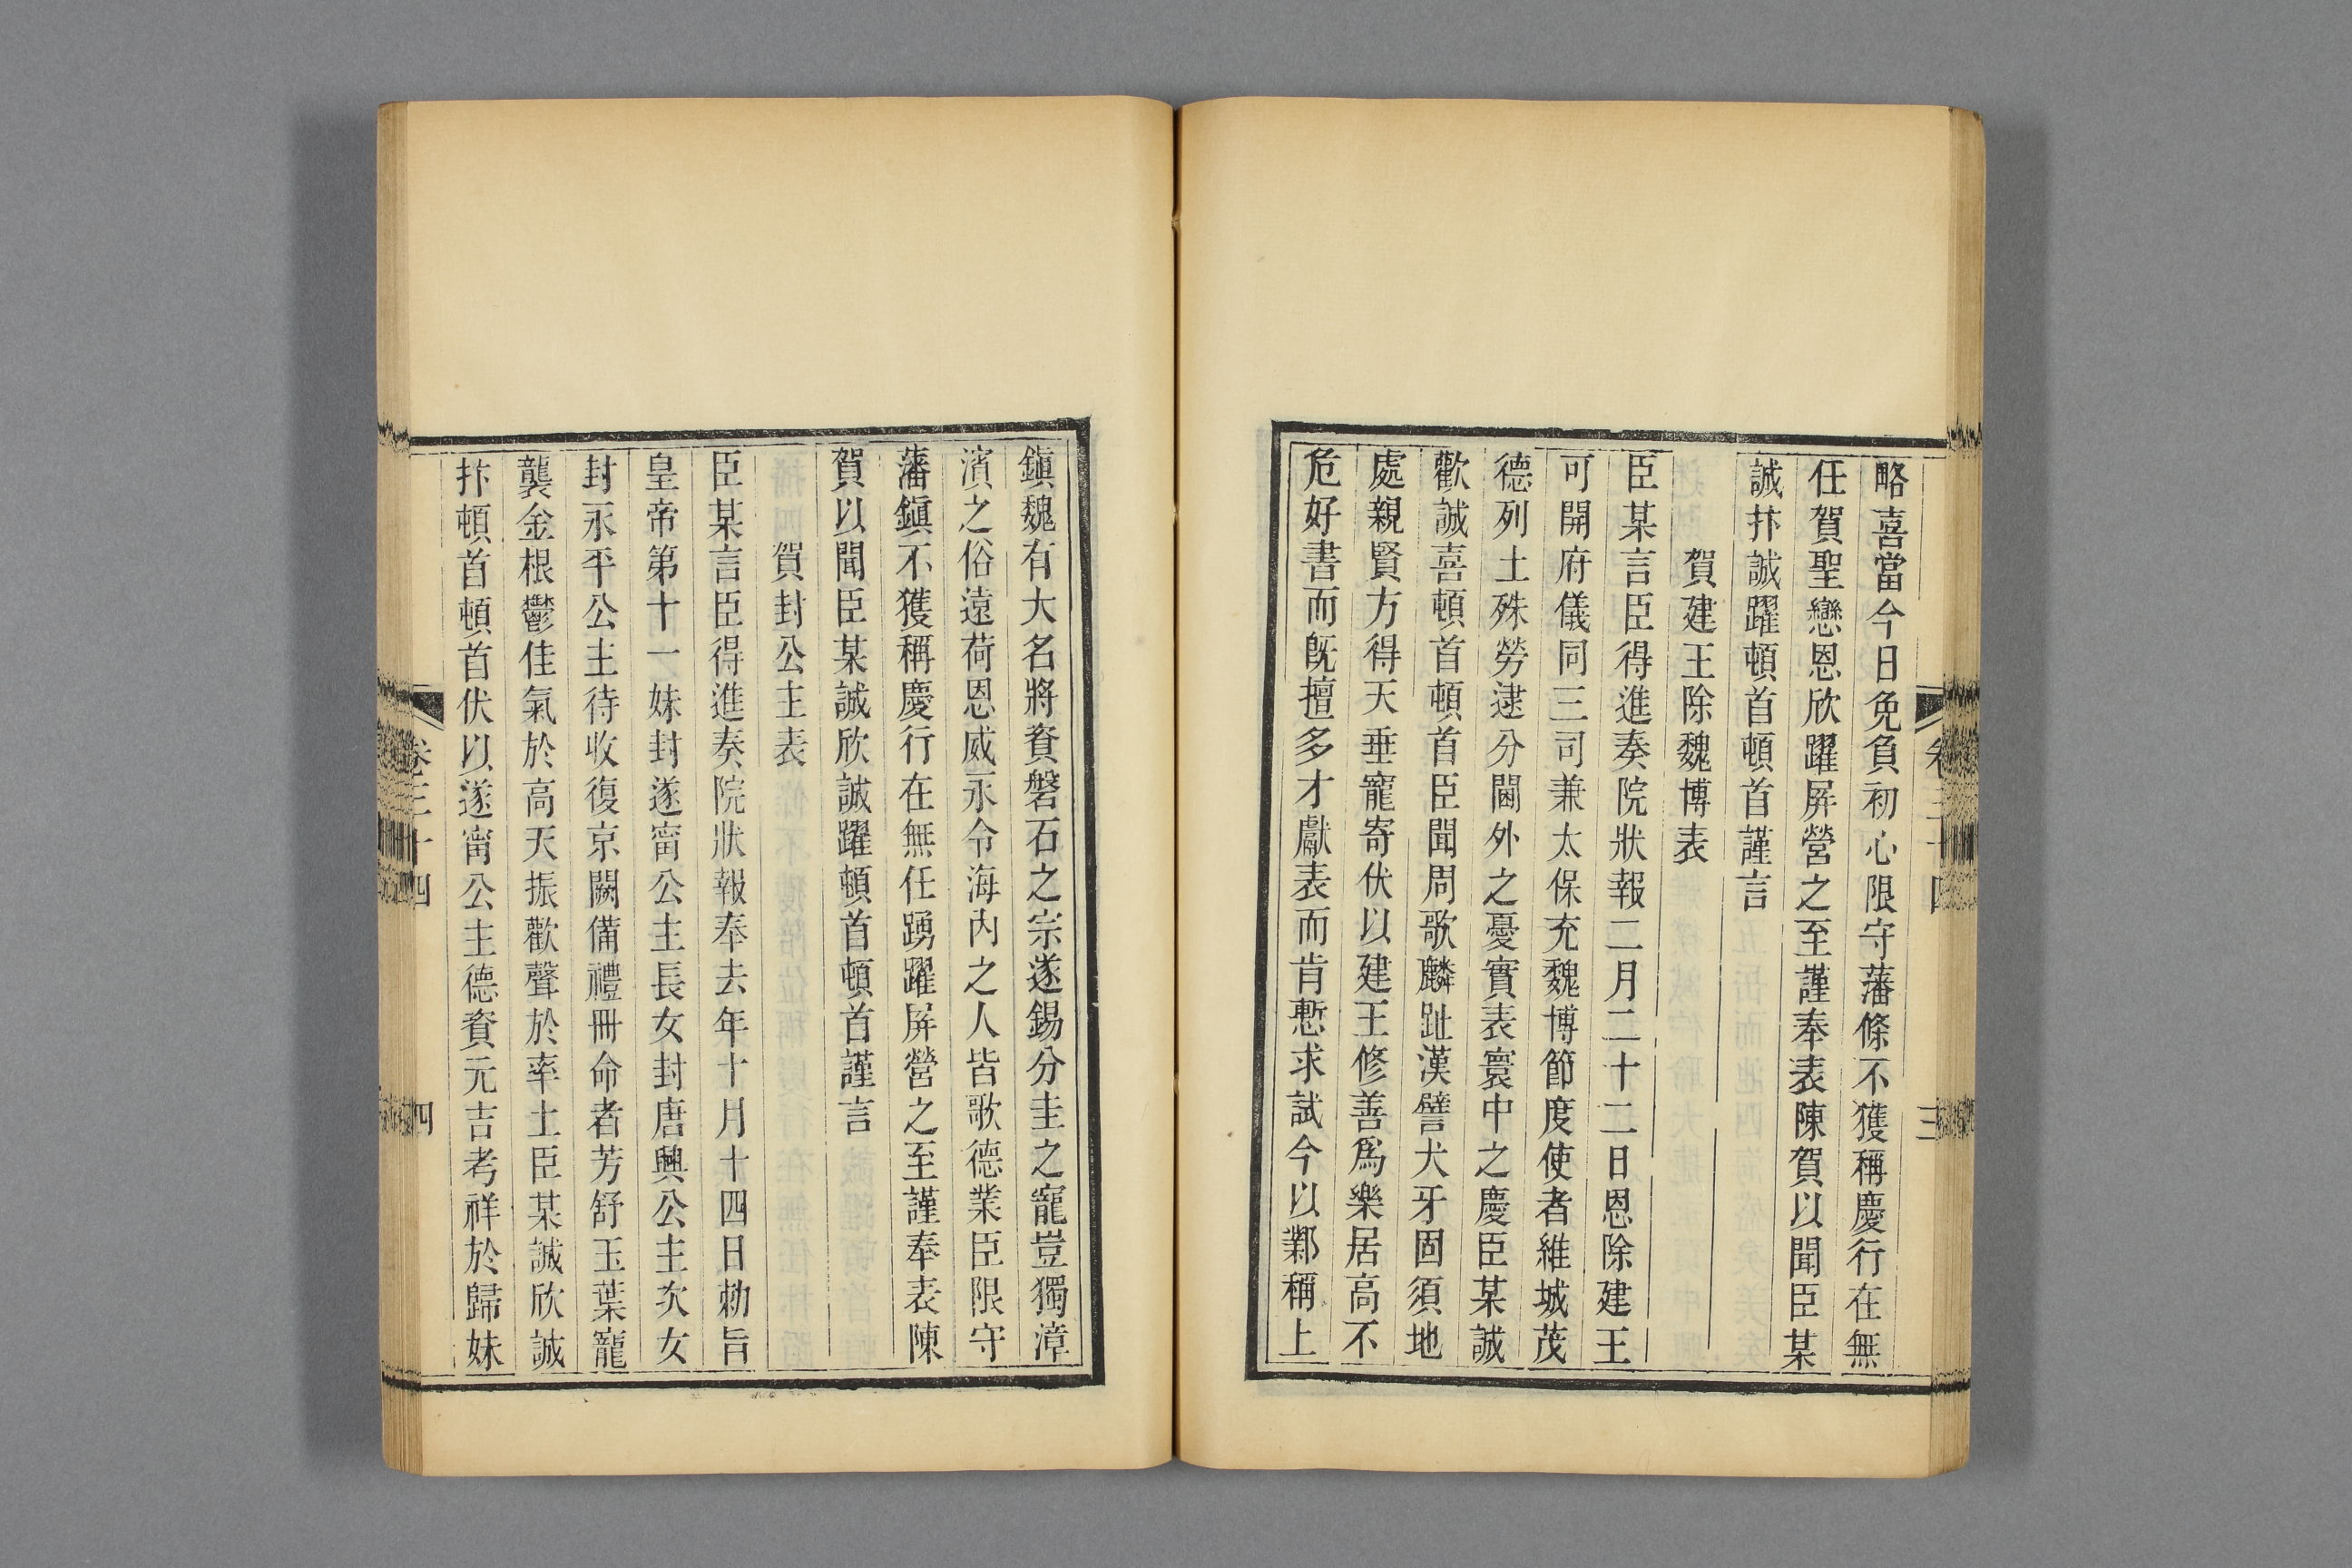 略喜當今日免負初心限守藩條不獲稱慶行在無
任賀聖戀恩欣躍屏營之至謹奉表陳賀以聞臣某
誠抃誠躍頓首頓首謹言
賀建王除魏博表
臣某言臣得進奏院狀報二月二十二日恩除建王
可開府儀同三司兼太保充魏博節度使者維城茂
德列土殊勞逮分閫外之憂實表寰中之慶臣某誠
歡誠喜頓首頓首臣聞周歌麟趾漢譬犬牙固須地
處親賢方得天垂寵寄伏以建王修善爲樂居高不
危好書而旣擅多才獻表而肯慙求試今以鄴稱上
鎭魏有大名將資磐石之宗遂錫分圭之寵豈獨漳
濱之俗遠荷恩威永令海內之人皆歌德業臣限守
藩鎭不獲稱慶行在無任踴躍屏營之至謹奉表陳
賀以聞臣某誠欣誠躍頓首頓首謹言
賀封公主表
臣某言臣得進奏院狀報奉去年十月十四日勑旨
皇帝第十一妹封遂甯公主長女封唐興公主次女
封永平公主待收復京闕備禮冊命者芳舒玉葉寵
襲金根鬱佳氣於高天振歡聲於率土臣某誠欣誠
抃頓首頓首伏以遂甯公主德資元吉考祥於歸妹
卷三十四
四
三